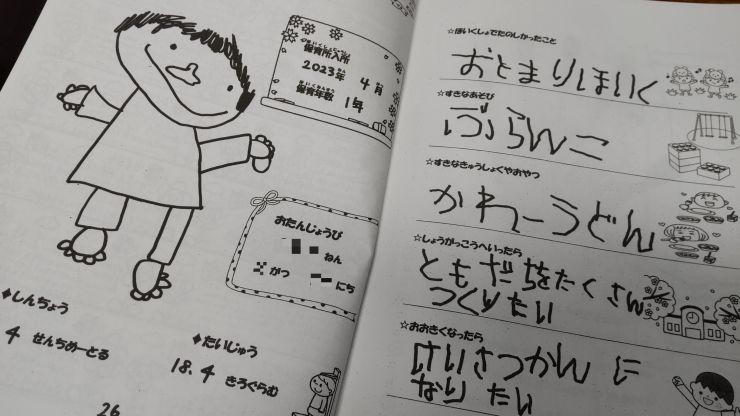 ほいくしょ
保育所入所
2023年 4月
ほいくねんすう
保育年数 1年
おたんじょうび
ねん
がつ にち
◆しんちょう
4 せんちめーとる
◆たいじゅう
18.4 きろぐらむ
26
☆ほいくしょでたのしかったこと
おとまりほいく
☆すきなあそび
ぶらんこ
☆すきなきゅうしょくやおやつ
かれーうどん
☆しょうがっこうへいったら
ともだちをたくさん
つくりたい
☆おおきくなったら
けいさつかんに
なりたい